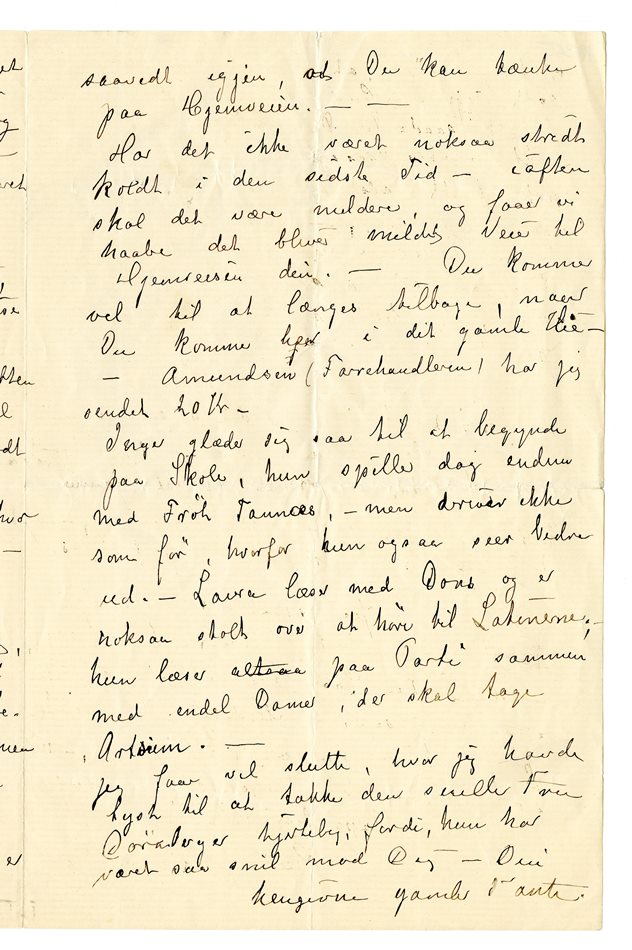 saavedt igjen, at Du kan tænke
paa Hjemveien. — —
Har det ikke været noksaa stridt
koldt i den sidste Tid — iaften
skal det være mildere, og faaer vi
haabe det bliver mildt Veir til
Hjemreisen din. — Du kommer
vel til at længes tilbage, naar
Du komme her i dit gamle Hie —
— Amundsen (Farvehandleren) har jeg
sendt 20 Kr —
Inga glæder sig saa til at begynde
paa Skole, hun spiller dog endnu
med Frök — men driver ikke
som för, hvorfor hun ogsaa seer bedre
ud. — Laura læser med Dons og er
noksaa stolt over at höre til Latinerne; —
hun læser altsaa paa Parti sammen
med endel Damer, der skal tage
Artium. —
jeg faar vel slutte, hvor jeg havde
lyst til at takke den snille Fru
hjerteligt, fordi, hun har
været saa snil mod Dig — Din
hengivne gamle Tante.